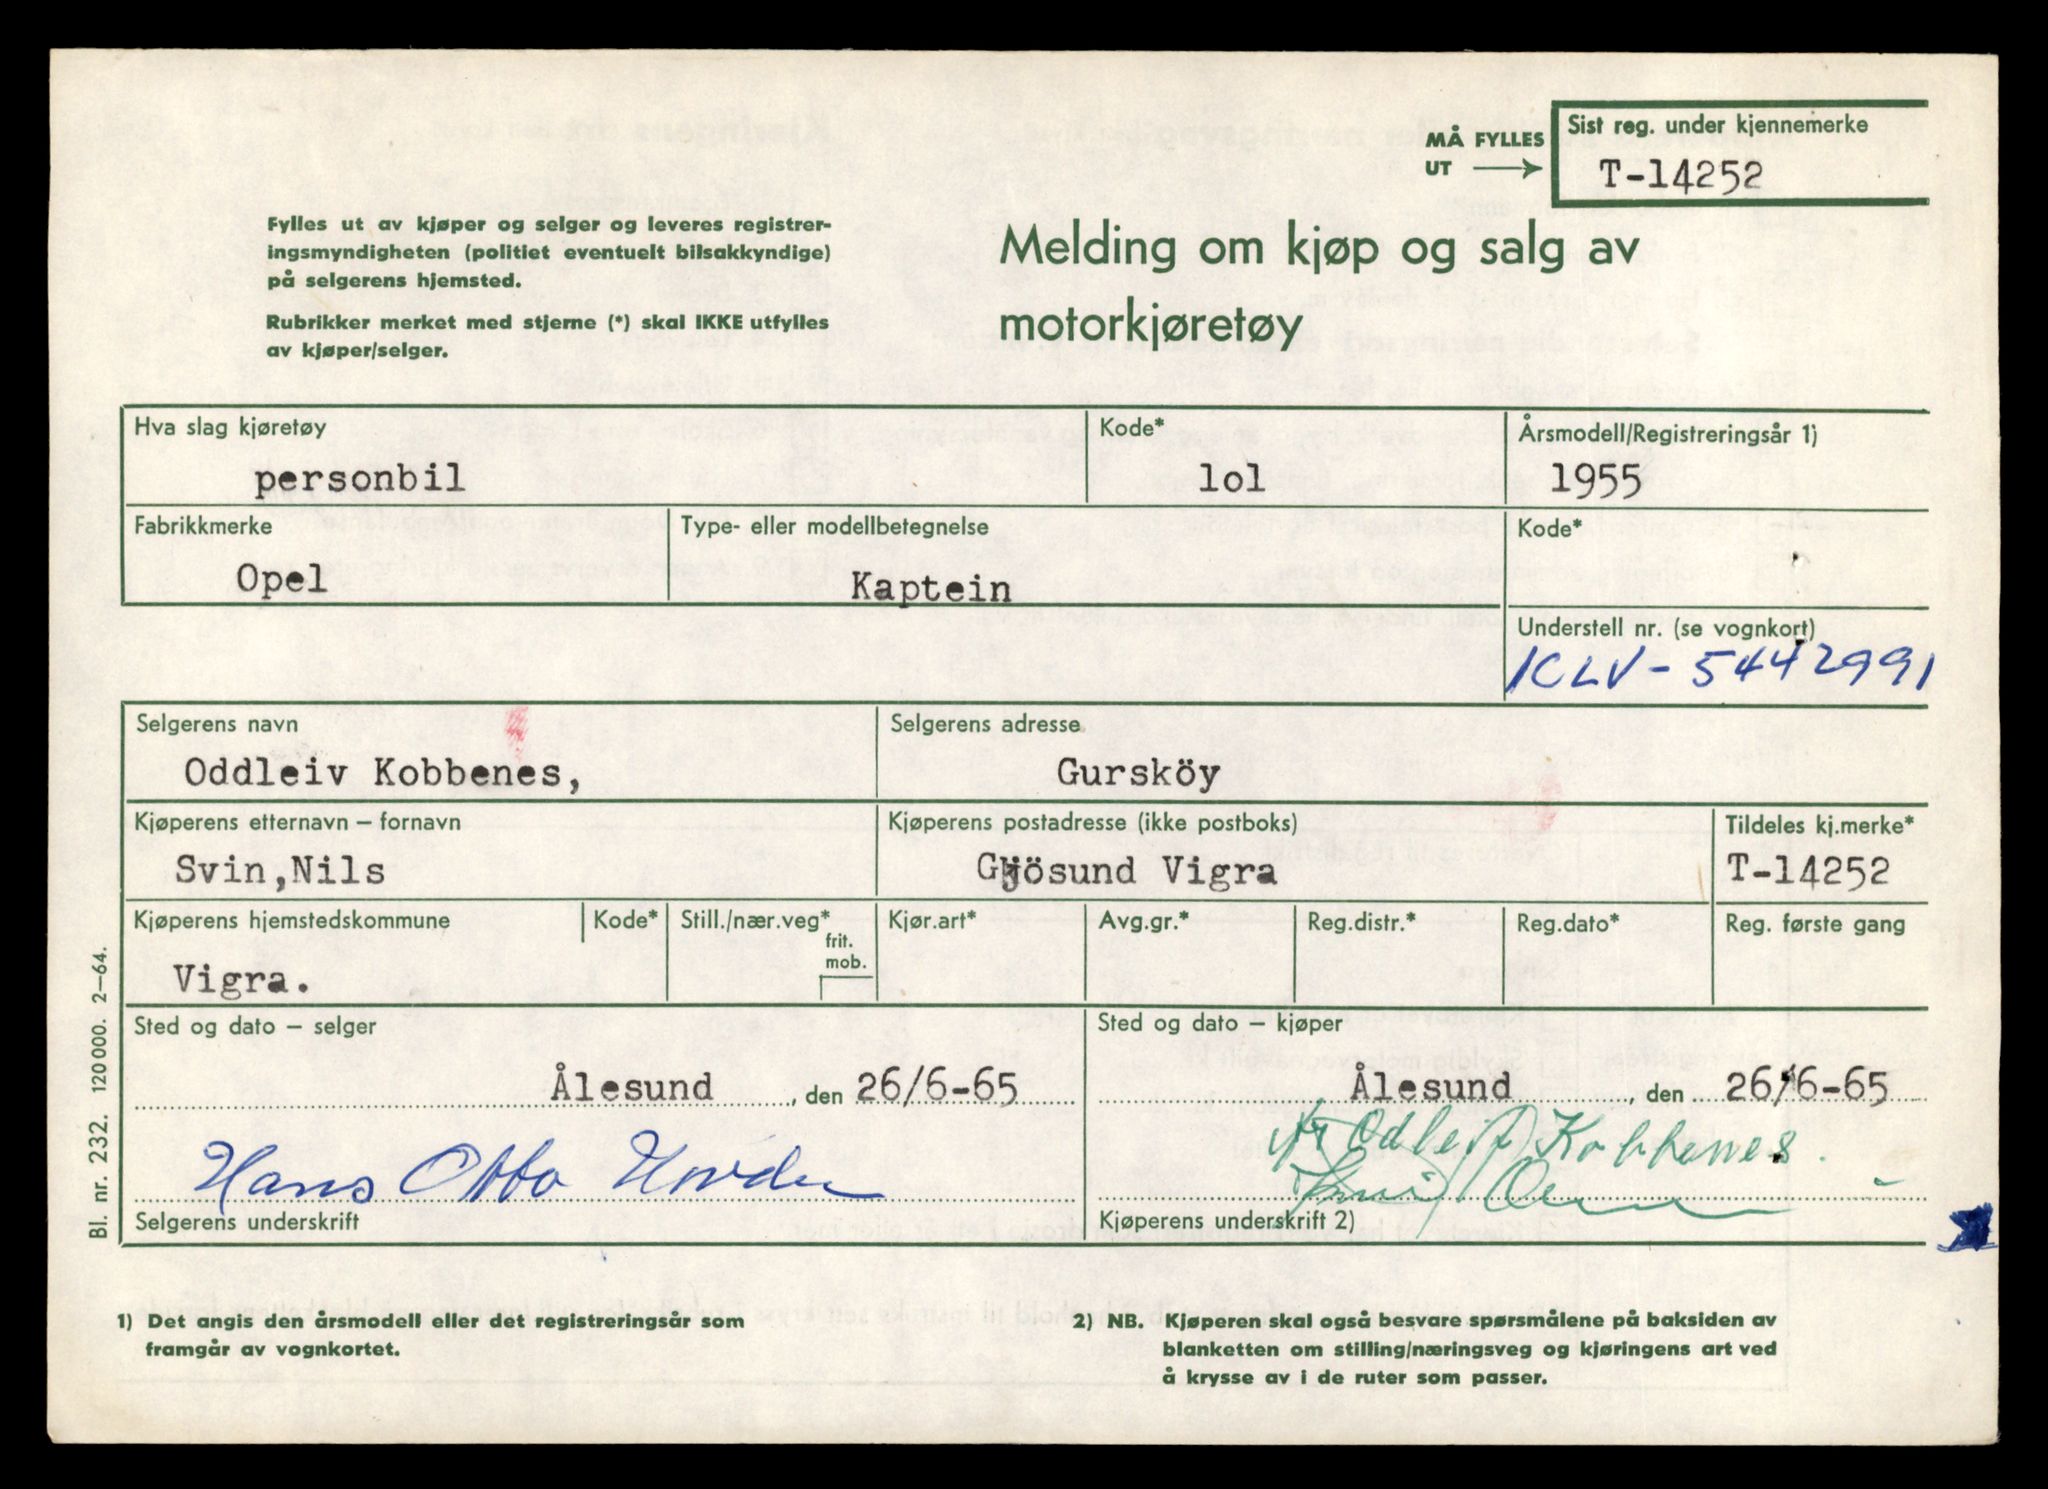 MÅ FYLLES
UT
Sist reg. under kjennemerke
T-14252
Fylles ut av kjøper og selger og leveres registrer-
ingsmyndigheten (politiet eventuelt bilsakkyndige)
på selgerens hjemsted.
Rubrikker merket med stjerne (*) skal IKKE utfylles
av kjøper/selger.
Melding om kjøp og salg av
motorkjøretøy
Hva slag kjøretøy
personbil
Kode*
lol
Årsmodell/Registreringsår 1)
1955
Fabrikkmerke
Opel
Type- eller modellbetegnelse
Kaptein
Kode*
Understell nr. (se vognkort)
KLV-5442991
Selgerens navn
Oddleiv Kobbenes,
Selgerens adresse
Gursköy
Kjøperens etternavn – fornavn
Svin,Nils
Kjøperens postadresse (ikke postboks)
Gjösund Vigra
Tildeles kj.merke*
T-14252
Kjøperens hjemstedskommune
Vigra.
Kode*
Still./nær.veg*
frit.
mob.
Kjør.art*
Avg.gr.*
Reg.distr.*
Reg.dato*
Reg. første gang
Sted og dato – selger
Ålesund, den 26/6-65
Hans Otto
Selgerens underskrift
Sted og dato – kjøper
Ålesund, den 26/6-65
Odleif Kobbenes.
Kjøperens underskrift 2)
Bl. nr. 232. 120 000. 2–64.
1) Det angis den årsmodell eller det registreringsår som
framgår av vognkortet.
2) NB. Kjøperen skal også besvare spørsmålene på baksiden av
blanketten om stilling/næringsveg og kjøringens art ved
å krysse av i de ruter som passer.